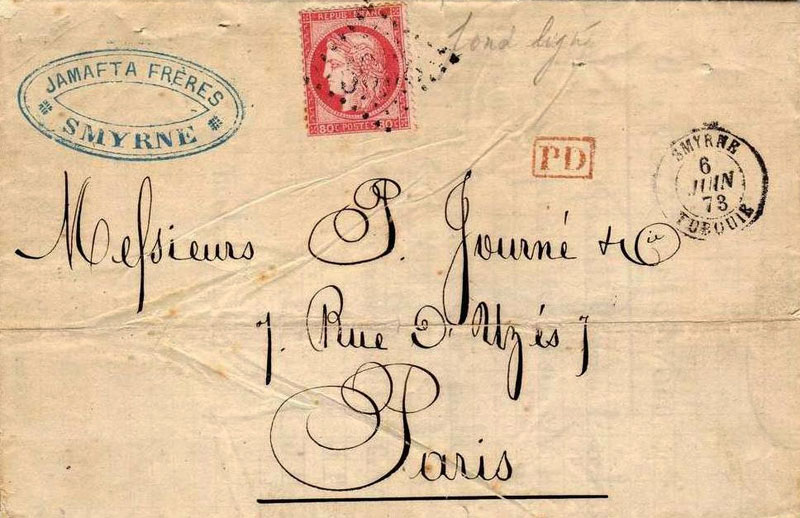 JAMAFTA FRÈRES
SMYRNE
REPUB FRANC
80c POSTES 80c
fond ligné
PD
SMYRNE
6
JUIN
73
TURQUIE
Messieurs P. Journé & Cie
7. Rue d'Uzés 7
Paris